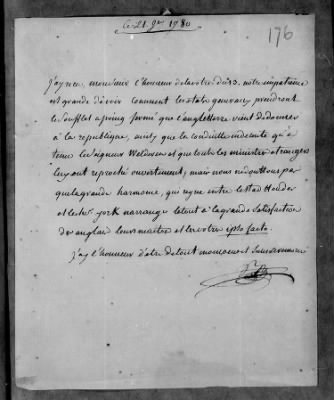 ce 21 9re 1780
176
j'ay recu, monsieur l'honneur de la votre du 13. notre impatience
est grande de voir comment les etats generaux prendront
le soufflet a poing fermé que l'angleterre vient de donner
a la republique, ainsy que la conduitte indecente qu'a
tenu le seigneur Welderen et que tous les ministres etrangers
luy ont reproché ouvertement, mais nous redouttons par
que la grande harmonie, qui regne entre le Stad Houder
et le York narrange le tout a la grande Satisfaction
des anglais leurs maitres et le votre ipso facto.
j'ay l'honneur d'etre de tout mon coeur et sans